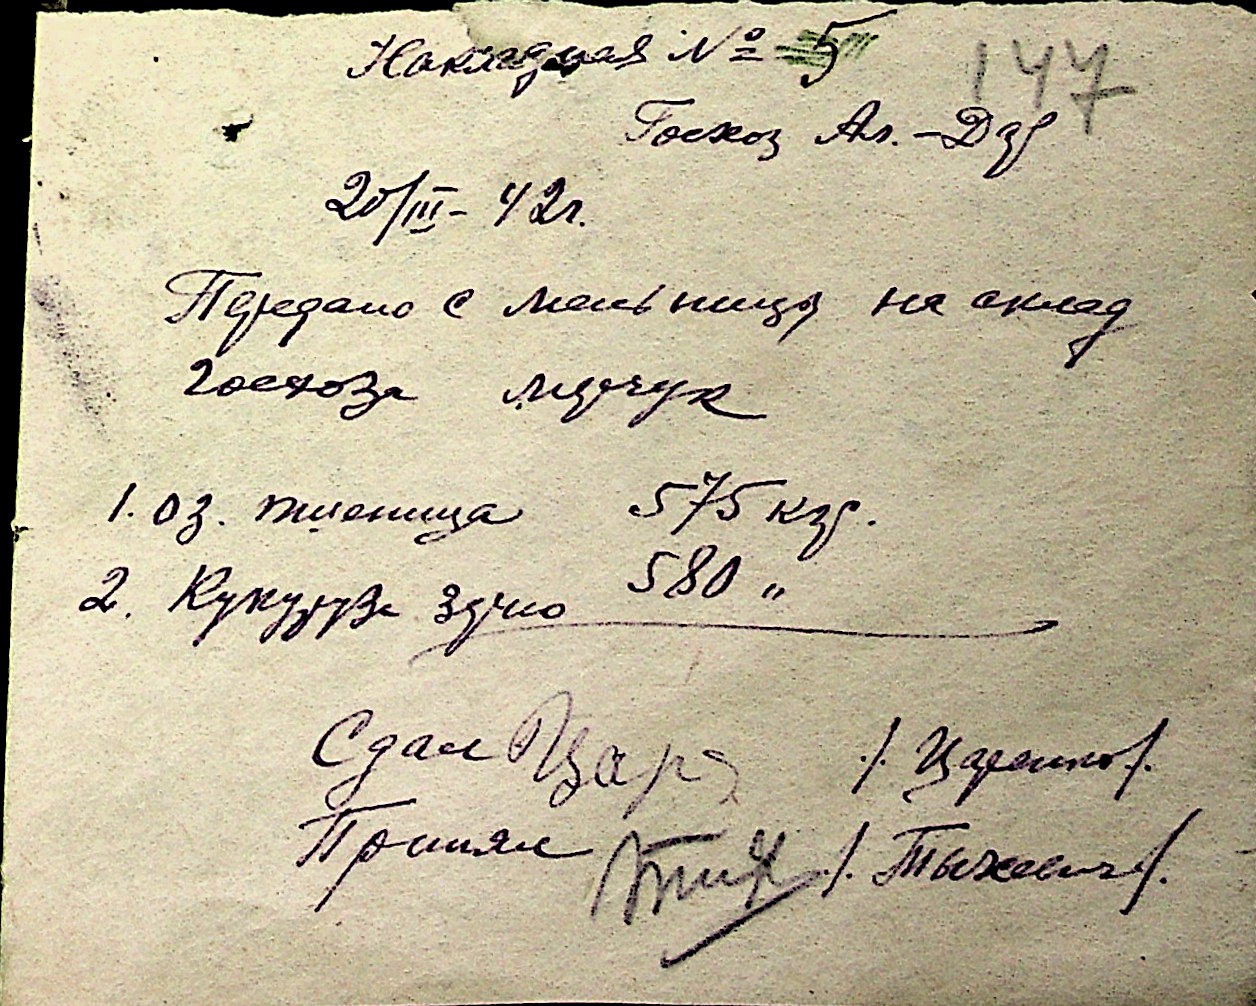 Накладная № 5
147
Госхоз Ал.-Дар
20/III - 42г.
Передано с мельницы на склад
госхоза
1. оз. пшеница 575 кгр.
2. Кукуруза зерно 580 "
Сдал Царе /. Царенко /.
Принял Тых /. Тыхевич /.